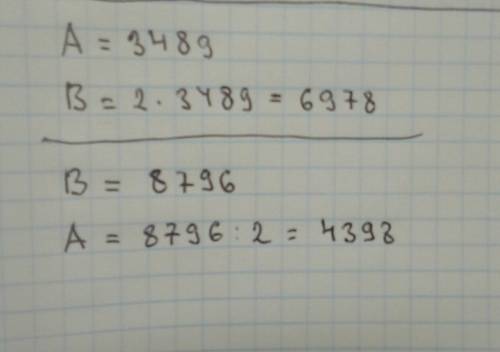 A = 3489
B = 2 · 3489 = 6978
B = 8796
A = 8796 : 2 = 4398